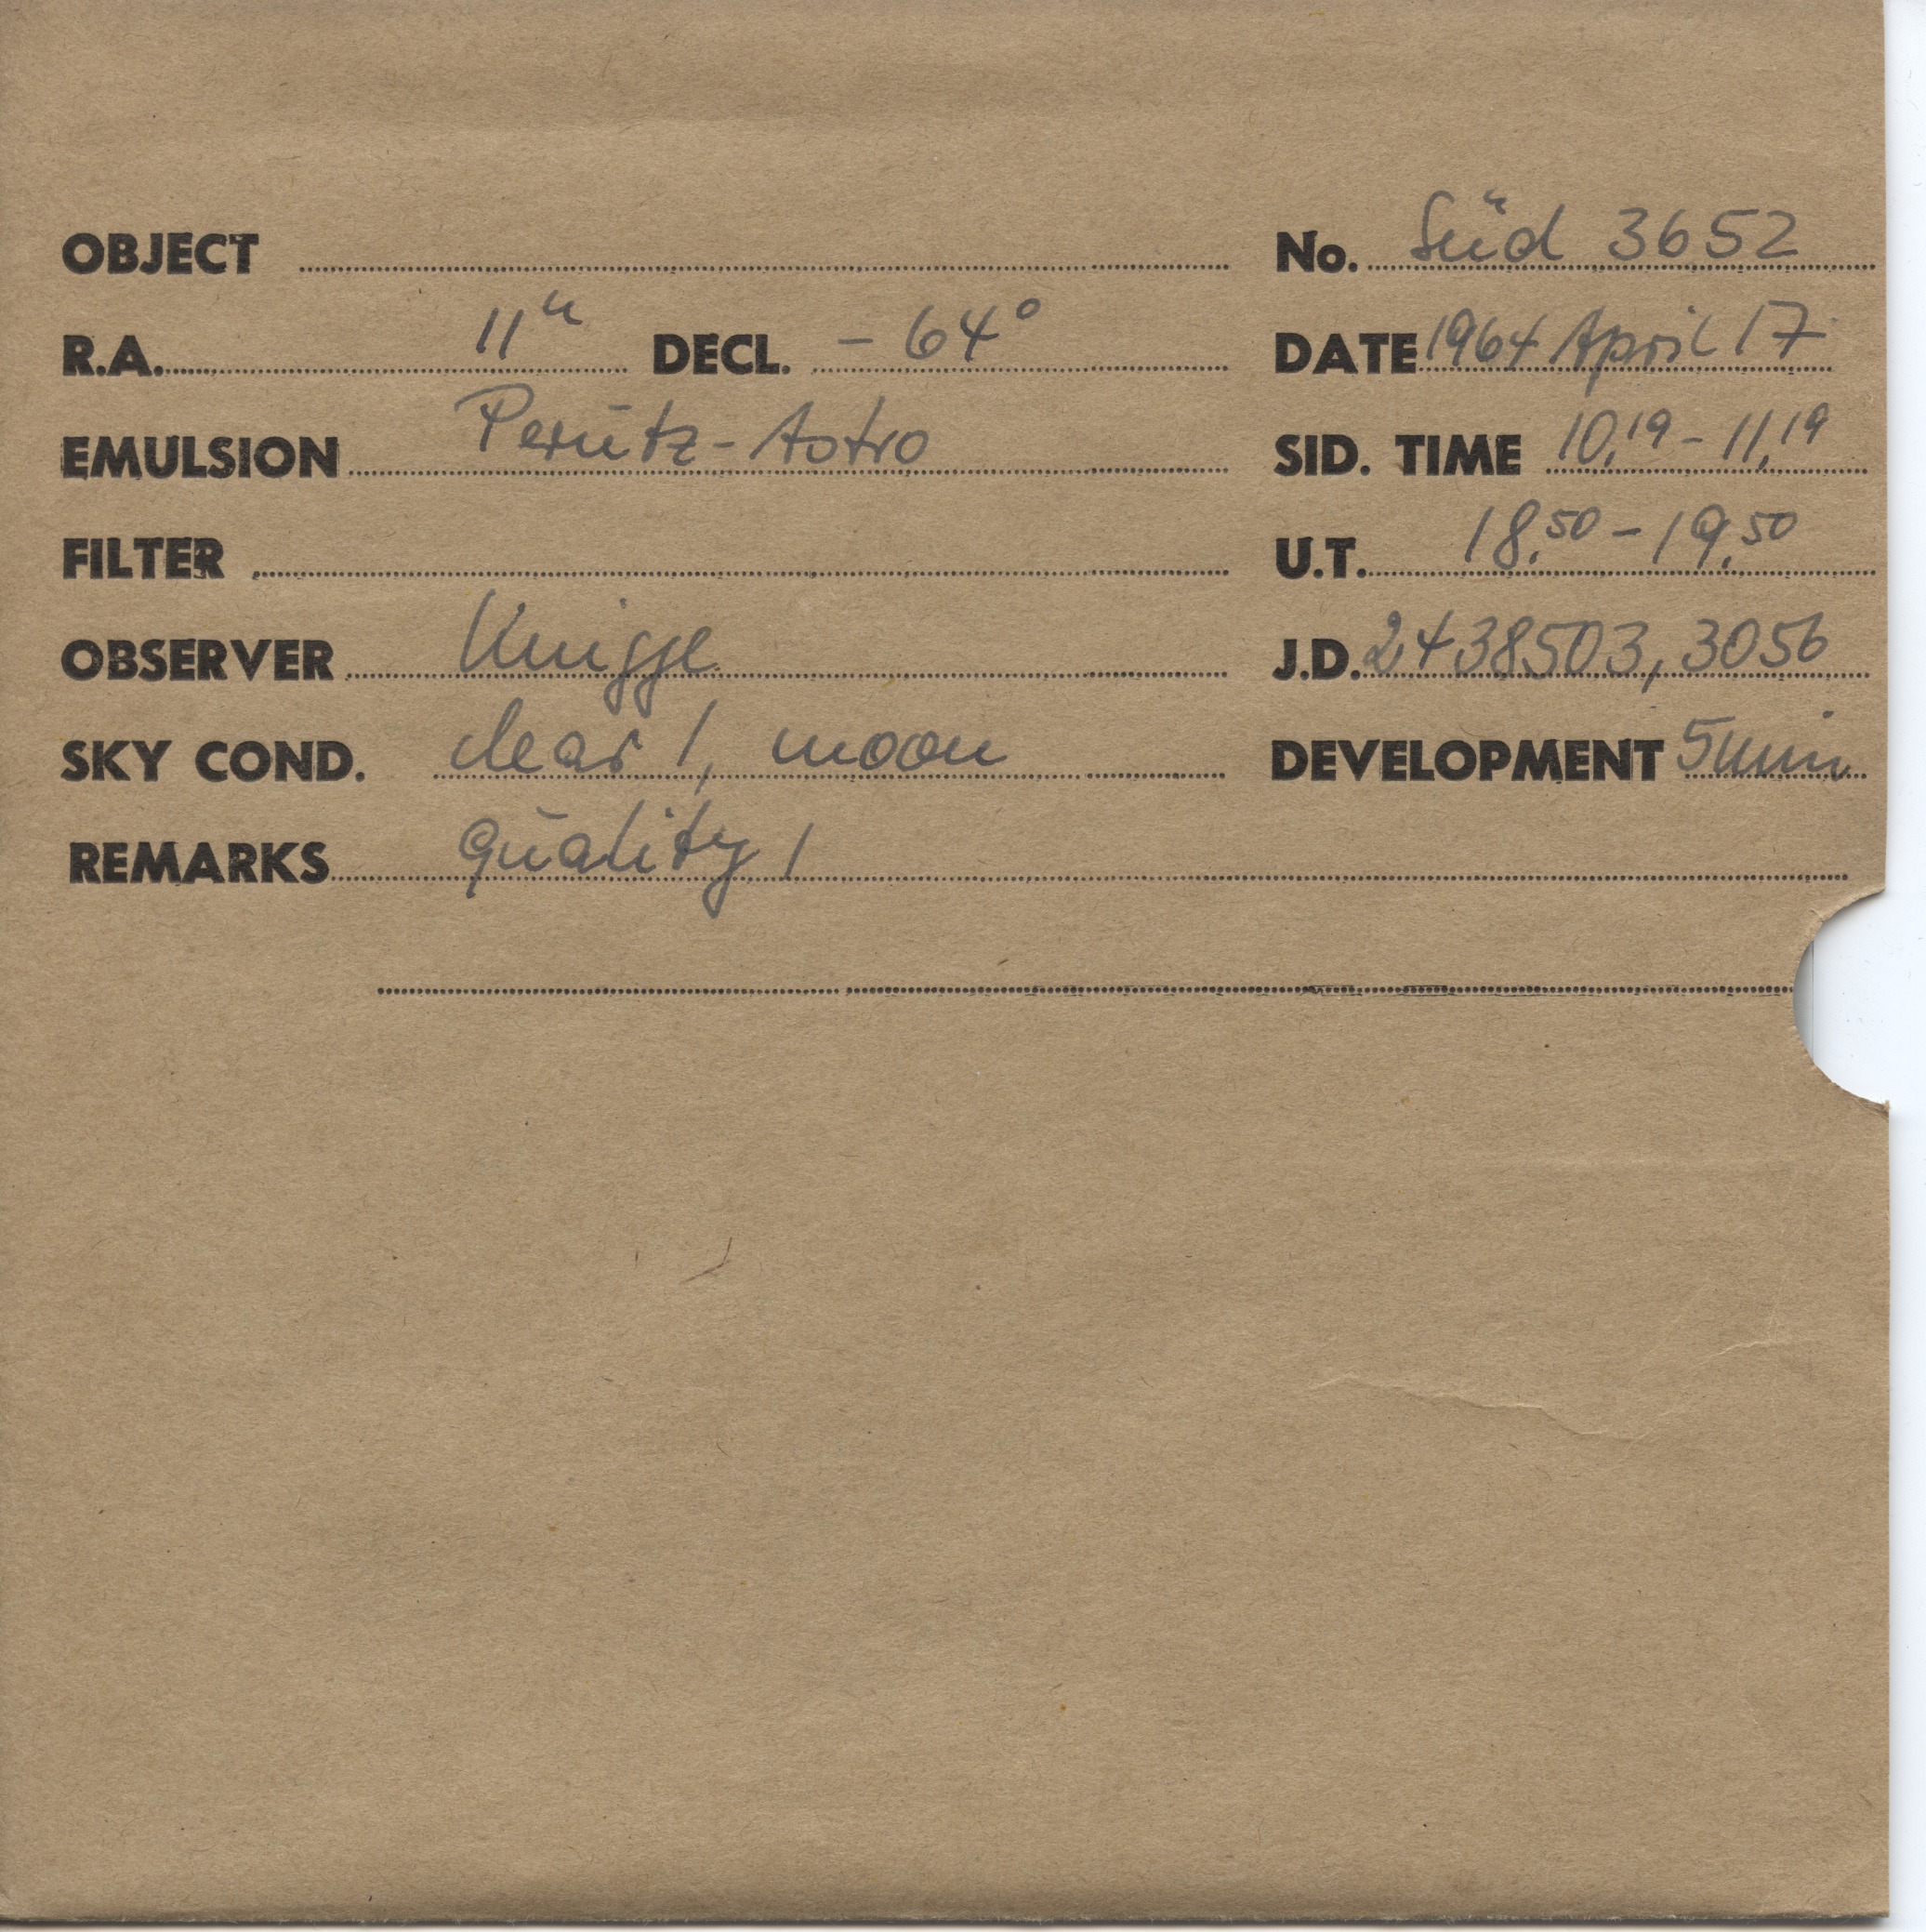 OBJECT No. Süd 3652
R.A. 11ʰ DECL. - 64° DATE 1964 April 17
EMULSION Perutz-Astro SID. TIME 10,19 - 11,19
FILTER U.T. 18,50 - 19,50
OBSERVER Knigge J.D. 2438503,3056
SKY COND. clear 1, moon DEVELOPMENT 5min
REMARKS quality 1